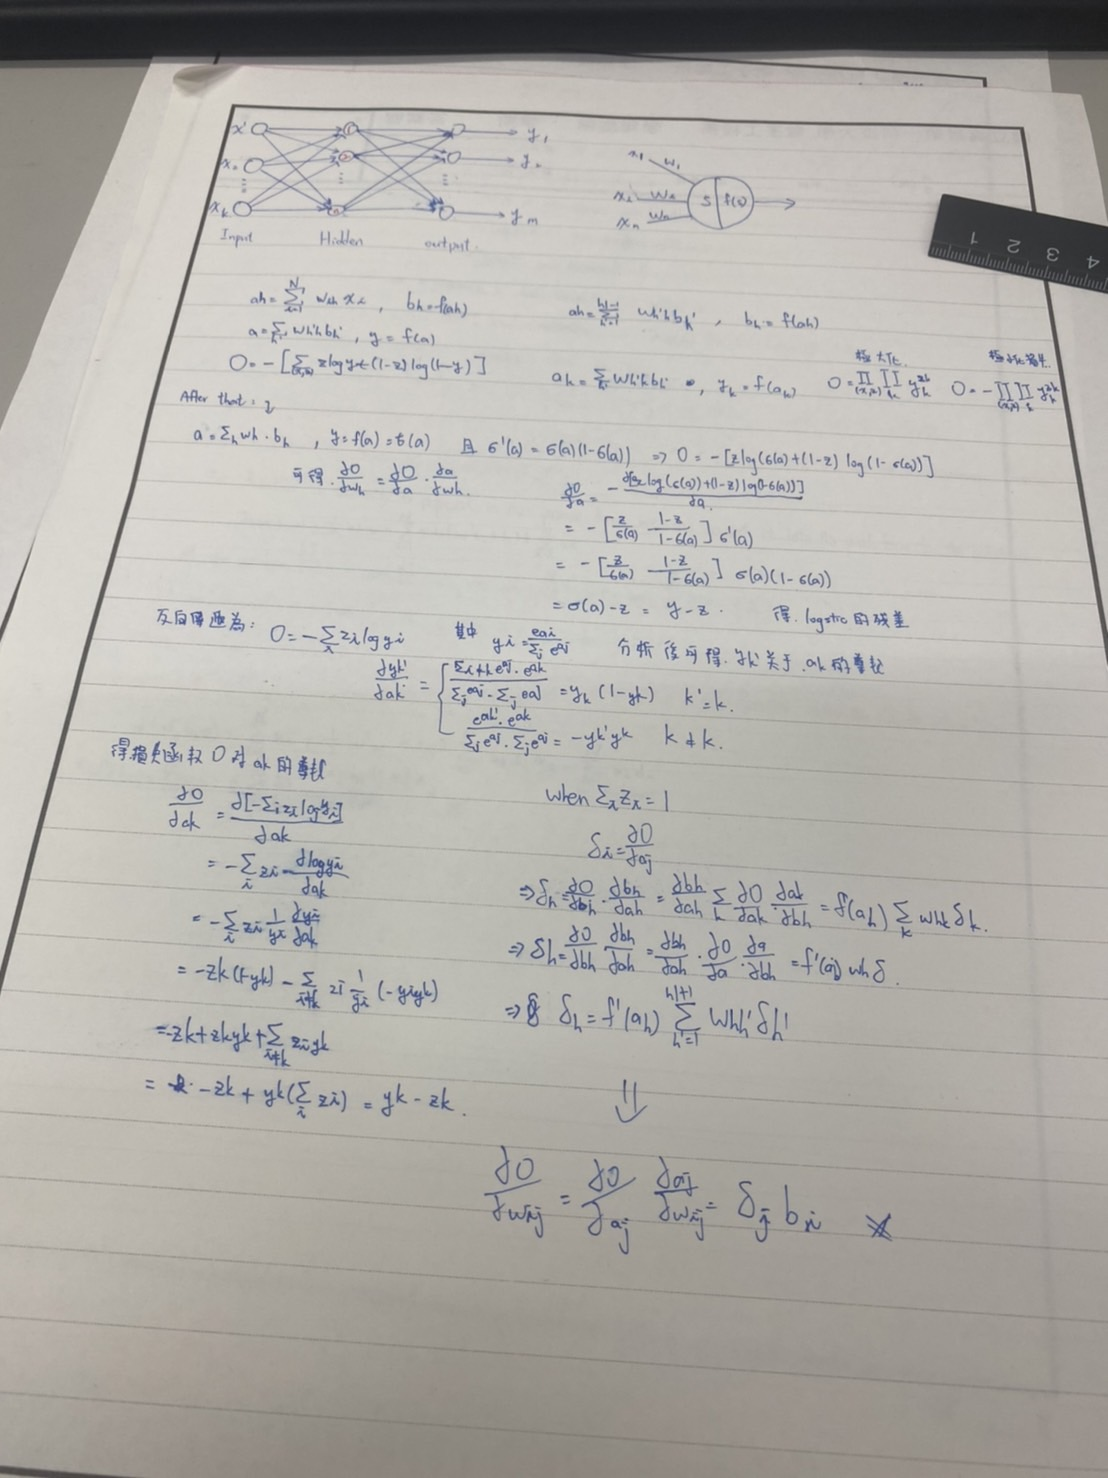 x₁ y₁
x₂ y₂
xₖ yₘ
Input Hidden output.
x₁ w₁
xᵢ wᵢ S f(s)
xₙ wₙ
1 2 3 4
ah = Σ(i=1→N) wih xi , bh = f(ah)
ah = Σ(h'=1→hl-1) wh'h bh' , bh = f(ah)
a = Σh' wh'h bh' , y = f(a)
O = -[Σ(x,z) z log y + (1-z) log(1-y)]
ak = Σh' wh'h bh' , yk = f(ak)
極大化 O = Π(x,z) Πk yk^zk
O = -Π(x,z) Πk yk^zk
After that :
a = Σh wh · bh , y = f(a) = σ(a) 且 σ'(a) = σ(a)(1-σ(a)) ⇒ O = -[z log(σ(a) + (1-z) log(1-σ(a))]
可得. ∂O/∂wh = ∂O/∂a · ∂a/∂wh.
∂O/∂a = - ∂[z log(σ(a)) + (1-z) log(1-σ(a))]/∂a.
= -[z/σ(a) - (1-z)/(1-σ(a))] σ'(a)
= -[z/σ(a) - (1-z)/(1-σ(a))] σ(a)(1-σ(a))
= σ(a) - z = y - z . 得. logstic 的殘差
反向傳遞為: O = -Σi zi log yi 其中 yi = e^ai / Σj e^aj 分析後可得. yk' 关于 ak 的導數
∂yk'/∂ak = { Σi≠k e^aj · e^ak / Σj e^aj - Σj e^aj = yk (1-yk) k' = k.
e^ak' · e^ak / Σj e^aj · Σj e^aj = -yk' yk k ≠ k.
得損失函數 O 对 ak 的導數
∂O/∂ak = ∂[-Σi zi log yi]/∂ak
= -Σi zi ∂log yi/∂ak
= -Σi zi 1/yi ∂yi/∂ak
= -zk(1-yk) - Σi≠k zi 1/yi (-yi yk)
= -zk + zk yk + Σi≠k zi yk
= -zk + yk(Σi zi) = yk - zk .
when Σi Zi = 1
δi = ∂O/∂aj
⇒ δh = ∂O/∂bh · ∂bh/∂ah = ∂bh/∂ah Σk ∂O/∂ak · ∂ak/∂bh = f'(ah) Σk whk δk.
⇒ δh = ∂O/∂bh · ∂bh/∂ah = ∂bh/∂ah · ∂O/∂a · ∂a/∂bh = f'(aj) wh δ .
⇒ δh = f'(ah) Σ(h'=1→hl+1) whh' δh'
⇓
∂O/∂wij = ∂O/∂aj ∂aj/∂wij = δj bi